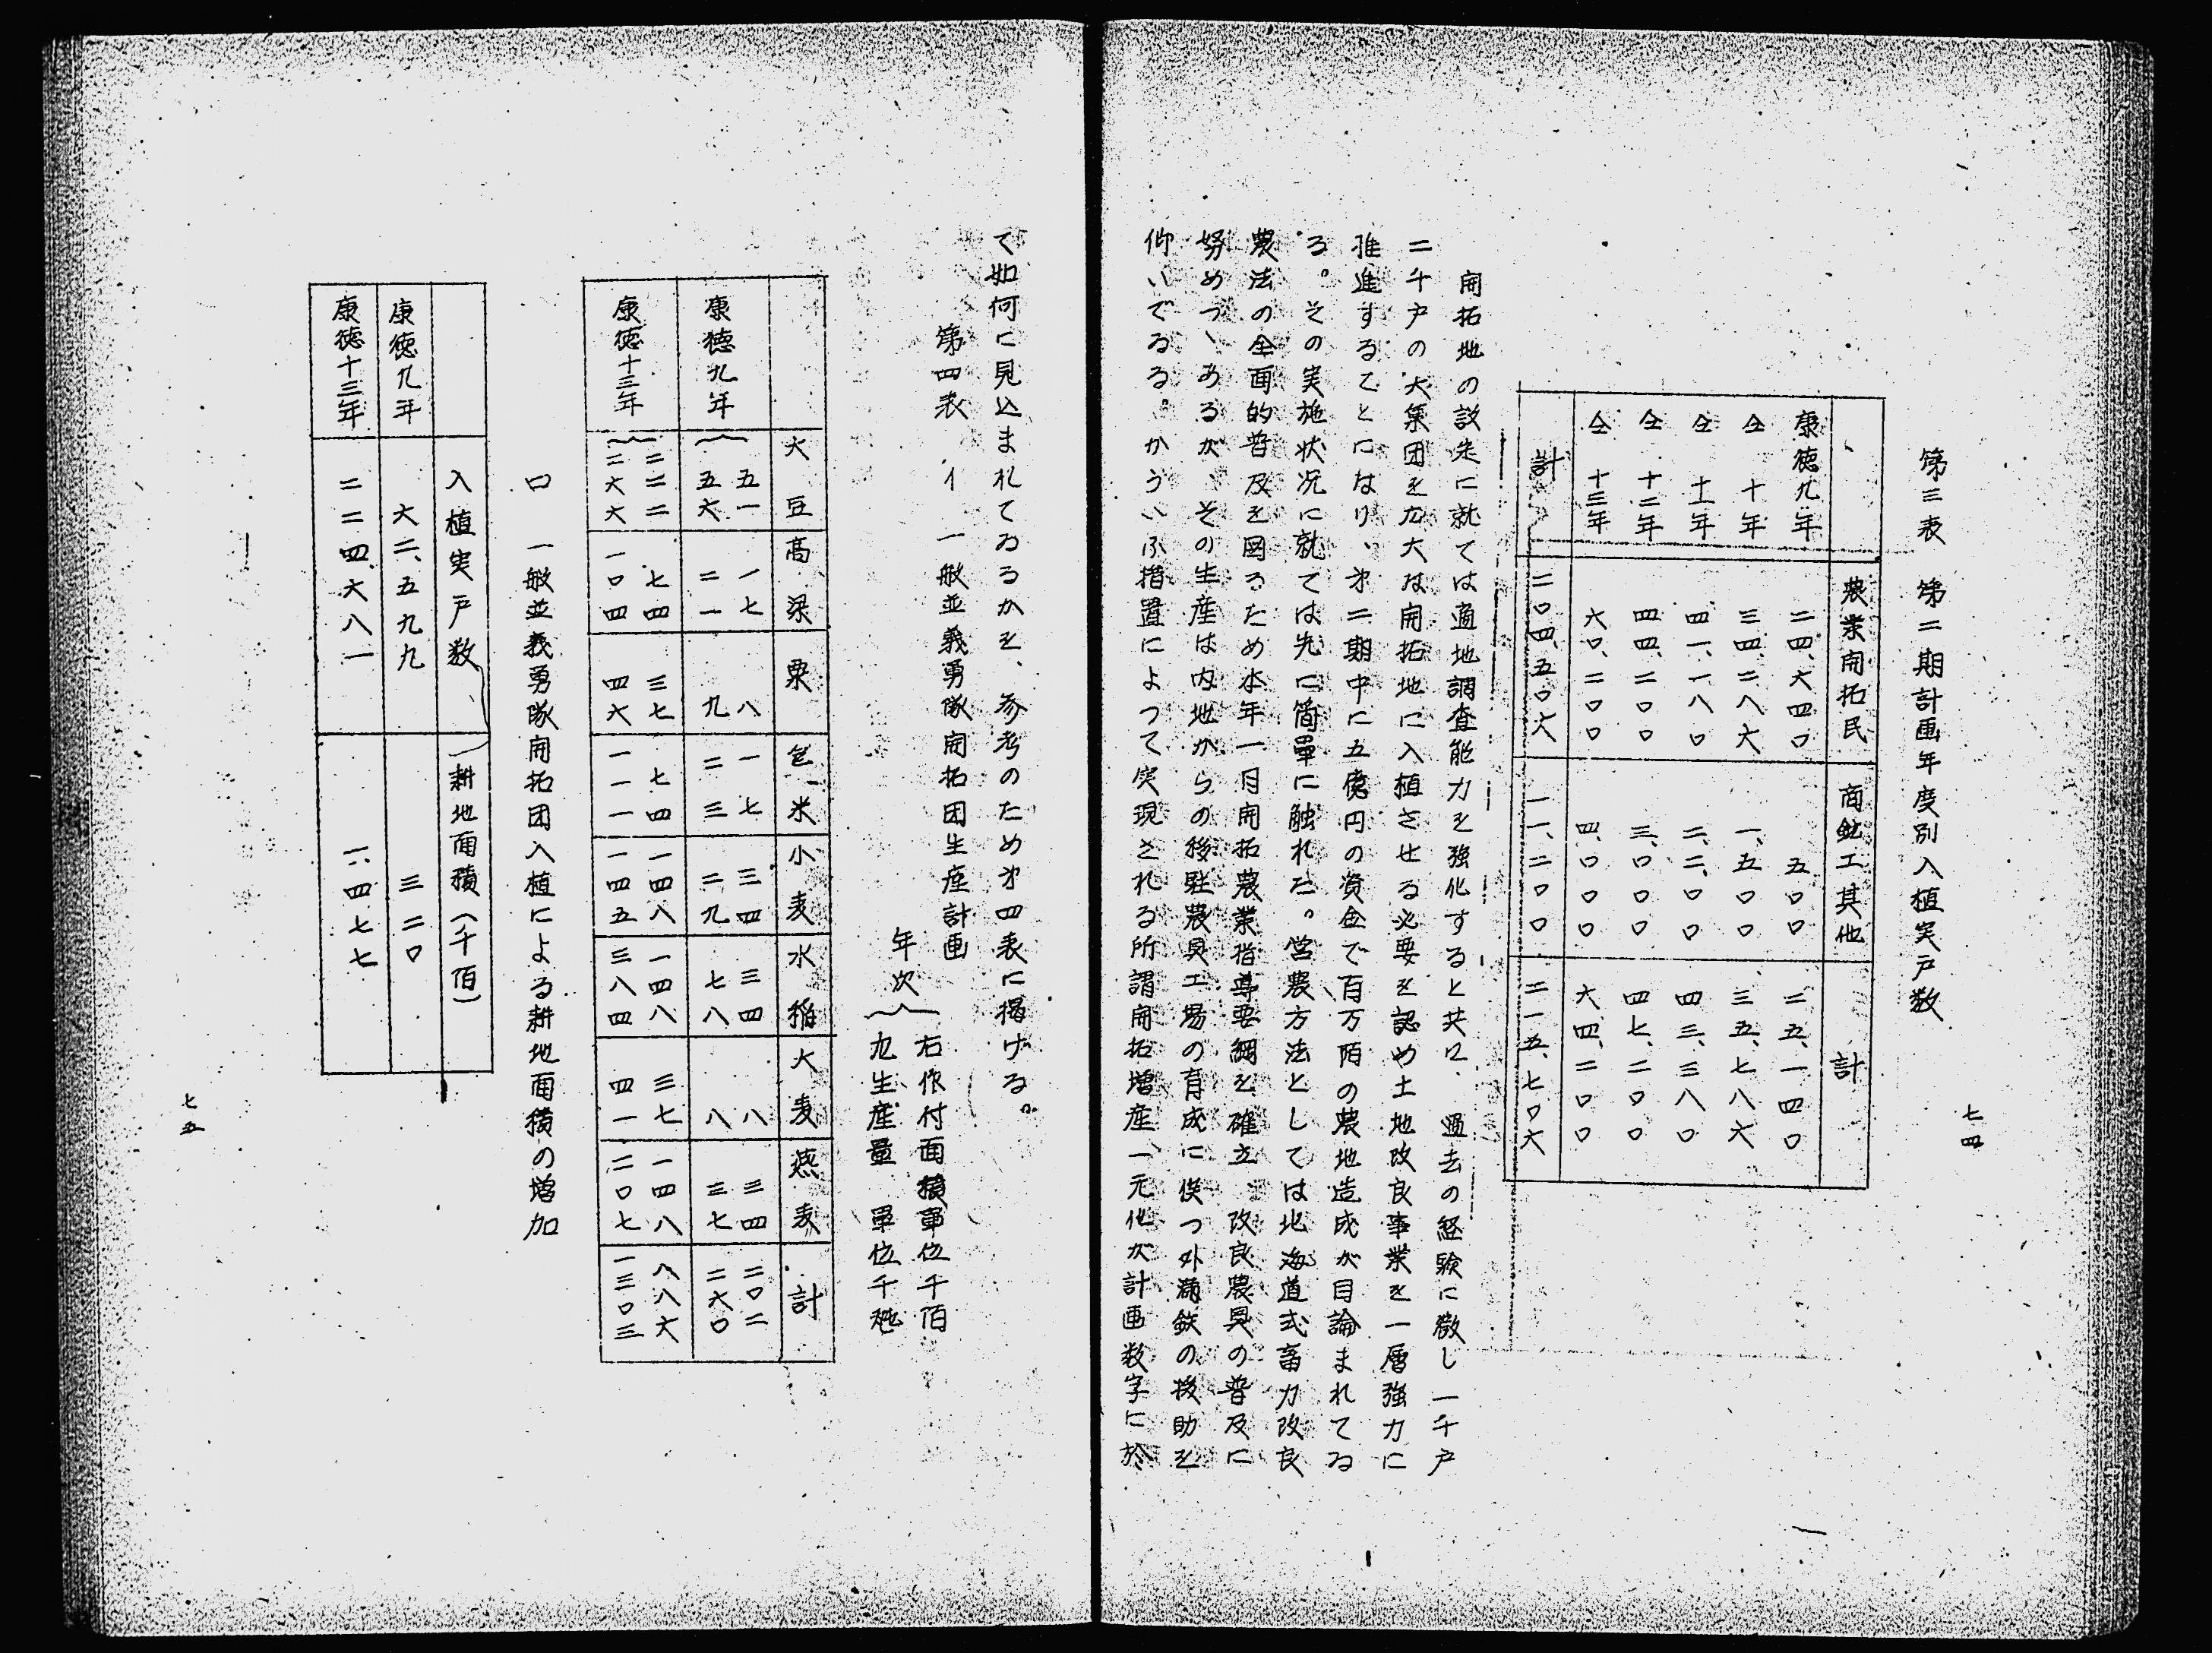 七四
第三表　第二期計画年度別入植実戸数
農業開拓民　商鉱工其他　計
康徳九年　二四、六四〇　五〇〇　二五、一四〇
仝　十年　三四、二八六　一、五〇〇　三五、七八六
仝　十一年　四一、一八〇　二、二、〇〇　四三、三八〇
仝　十二年　四四、二〇〇　三、〇〇〇　四七、二〇〇
仝　十三年　六〇、二〇〇　四、〇〇〇　六四、二〇〇
計　二〇四、五〇六　一一、二〇〇　二一五、七〇六
開拓地の設定に就ては適地調査能力を強化すると共に、過去の経験に徴し一千戸
二千戸の大集団を尨大な開拓地に入植させる必要を認め土地改良事業を一層強力に
推進することになり、才二期中に五億円の資金で百万陌の農地造成が目論まれてゐ
る。その実施状況に就ては先に簡単に触れた。営農方法としては北海道式畜力改良
農法の全面的普及を図るため本年一月開拓農業指導要綱を確立、改良農具の普及に
努めつヽあるが、その生産は内地からの移駐農具工場の育成に俟つ外満鉄の援助を
仰いでゐる。かういふ措置によつて実現される所謂開拓増産一元化が計画数字に於
て如何に見込まれてゐるかを、参考のため才四表に掲げる。
第四表　イ、一般並義勇隊開拓団生産計画
年次
右作付面積単位千陌
九生産量　単位千瓲
大豆　高粱　粟　包米　小麦　水稲　大麦　燕麦　計
康徳九年　五一　一七　八　一七　三四　三四　八　三四　二〇二
五六　二一　九　二三　二九　七八　八　三七　二六〇
康徳十三年　二二二　七四　三七　七四　一四八　一四八　三七　一四八　八八六
二六六　一〇四　四六　一一一　一四五　三八四　四一　二〇七　一三〇三
ロ　一般並義勇隊開拓団入植による耕地面積の増加
入植実戸数　耕地面積（千陌）
康徳九年　六二、五九九　三二〇
康徳十三年　二二四、六八一　一、四七七
七五